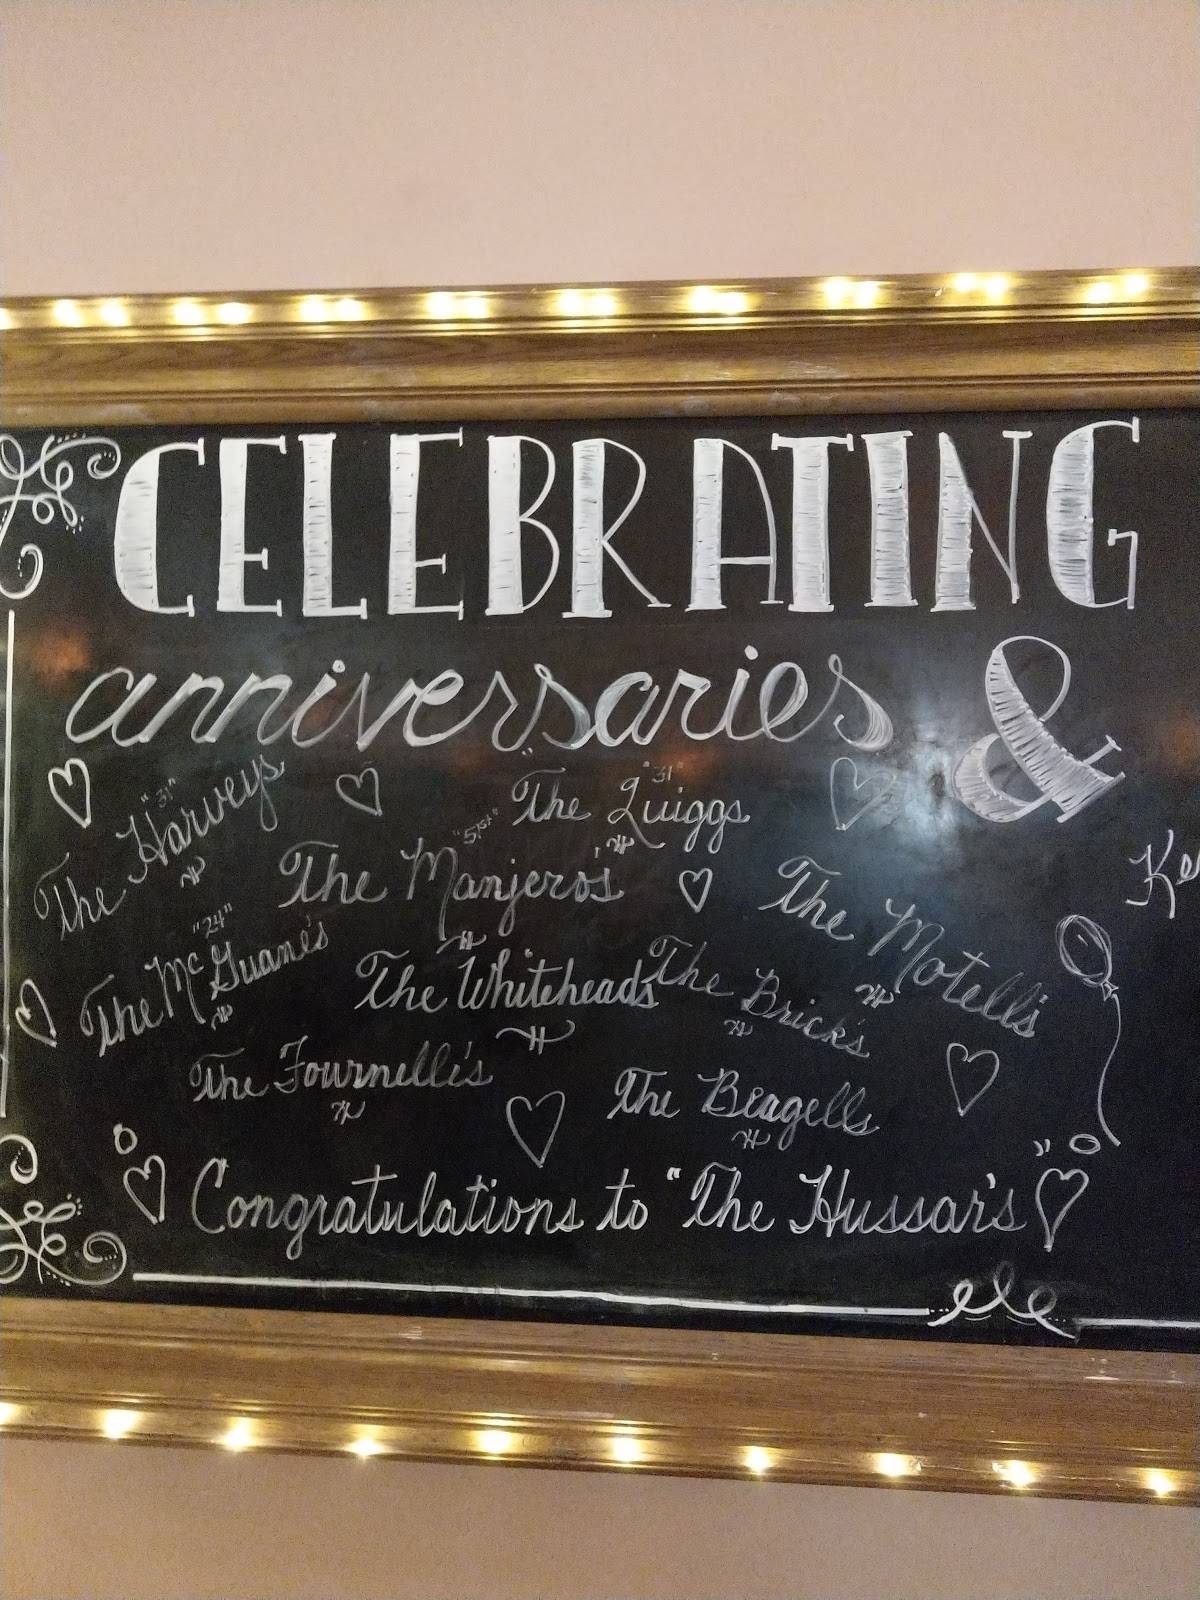 CELEBRATING
anniversaries &
"31"
The Harveys
"31"
The Quiggs
"51st"
The Manjero's
The Motell's
"24"
The McGuane's
The Whiteheads
The Brick's
The Fournelle's
The Beagells
Congratulations to "The Hussar's"